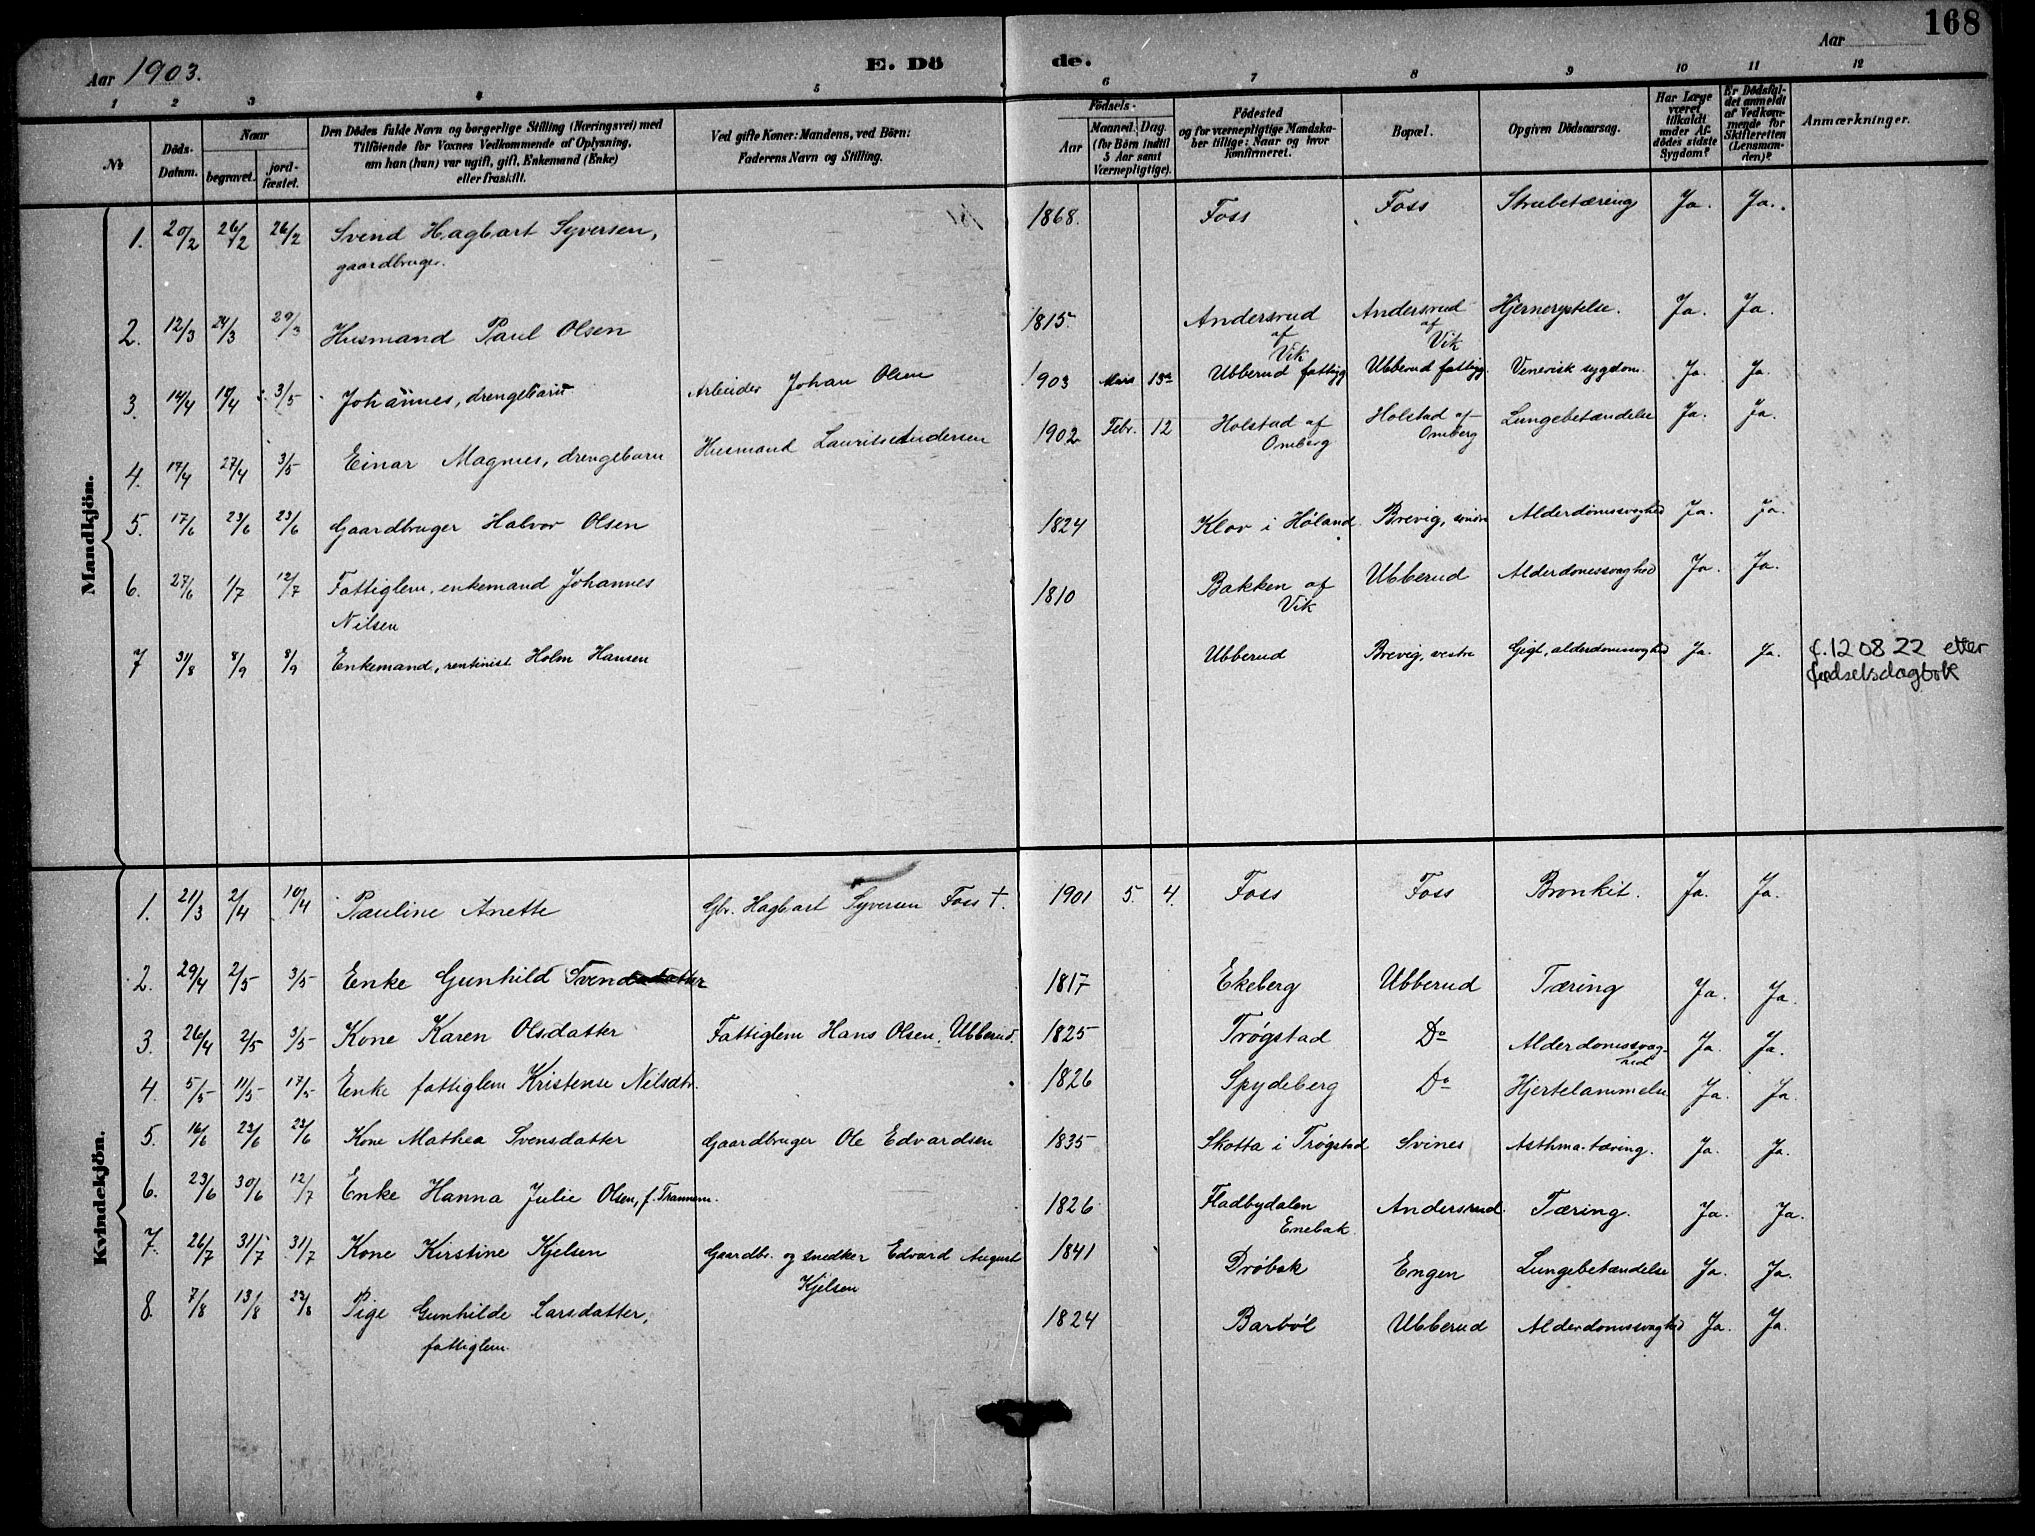 168
Aar 1903.
E. Dö
de.
Aar
1 2 3 4 5 6 7 8 9 10 11 12
No
Döds-Datum.
Naar
begravet.
jord-fæstet.
Den Dödes fulde Navn og borgerlige Stilling (Næringsvei) med
Tilföiende for Voxnes Vedkommende af Oplysning,
om han (hun) var ugift, gift, Enkemand (Enke)
eller fraskilt.
Ved gifte Koner: Mandens, ved Börn:
Faderens Navn og Stilling.
Födsels-
Aar
Maaned. Dag.
(for Börn indtil
5 Aar samt
Værnepligtige).
Födested
og for værnepligtige Mandska-
ber tillige: Naar og hvor
konfirmeret.
Bopæl.
Opgiven Dödsaarsag.
Har Læge
været
tilkaldt
under Af-
dödes sidste
Sygdom?
Er Dödsfal-
det anmeldt
af Vedkom-
mende for
Skifteretten
(Lensman-
den)?
Anmærkninger.
Mandkjön.
1. 20/2 26/2 26/2 Svend Hagbart Syversen, 1868. Foss Foss Strubetæring Ja. Ja.
gaardbruger.
2. 12/3 24/3 29/3 Husmand Paul Olsen 1815. Andersrud Andersrud Hjernerystelse. Ja. Ja.
af Vik af Vik
3. 14/4 19/4 3/5 Johannes, drengebarn Arbeider Johan Olsen 1903 Mars 15 Ubberud fattigg Ubberud fattigg. Venerisk sygdom. Ja. Ja.
4. 17/4 27/4 3/5 Einar Magnus, drengebarn Husmand Laurits Andersen 1902 Febr. 12 Holstad af Holstad af Lungebetændelse Ja. Ja.
Omberg Omberg
5. 17/6 23/6 23/6 Gaardbruger Halvor Olsen 1824 Klov i Høland. Brevig, søndre Alderdomssvaghed Ja. Ja.
6. 27/6 1/7 12/7 Fattiglem, enkemand Johannes 1810 Bakken af Ubberud Alderdomssvaghed Ja. Ja.
Nilsen Vik
7 31/8 8/9 8/9 Enkemand, rentinist Holm Hansen Ubberud Brevig, vestre Gigt, alderdomssvaghed Ja. Ja. f. 12 08 22 etter
fødselsdagbok
Kvindekjön.
1. 21/3 2/4 10/4 Pauline Anette Gbr. Hagbart Syversen Foss †. 1901 5. 4. Foss Foss Bronkit. Ja. Ja.
2. 29/4 2/5 3/5 Enke Gunhild Svendsdatter 1817 Ekeberg Ubberud Tæring Ja. Ja.
3. 26/4 2/5 3/5 Kone Karen Olsdatter Fattiglem Hans Olsen, Ubberud. 1825 Trøgstad Do Alderdomssvag-
hed Ja. Ja.
4. 5/5 11/5 17/5 Enke fattiglem Kristense Nilsdtr. 1826 Spydeberg Do Hjertelammelse Ja. Ja.
5. 16/6 23/6 23/6 Kone Mathea Svensdatter Gaardbruger Ole Edvardsen 1835 Skotta i Trøgstad Svines Asthma-tæring. Ja. Ja.
6. 23/6 30/6 12/7 Enke Hanna Julie Olsen, f. Trannem. 1826 Fladbydalen Andersrud. Tæring. Ja. Ja.
Enebak.
7. 26/7 31/7 31/7 Kone Kirstine Kjelsen Gaardbr. og snedker Edvard August 1841 Drøbak Engen Lungebetændelse Ja. Ja.
Kjelsen
8. 7/8 13/8 23/8 Pige Gunhilde Larsdatter, 1824 Barbøl Ubberud Alderdomssvaghed Ja. Ja.
fattiglem.